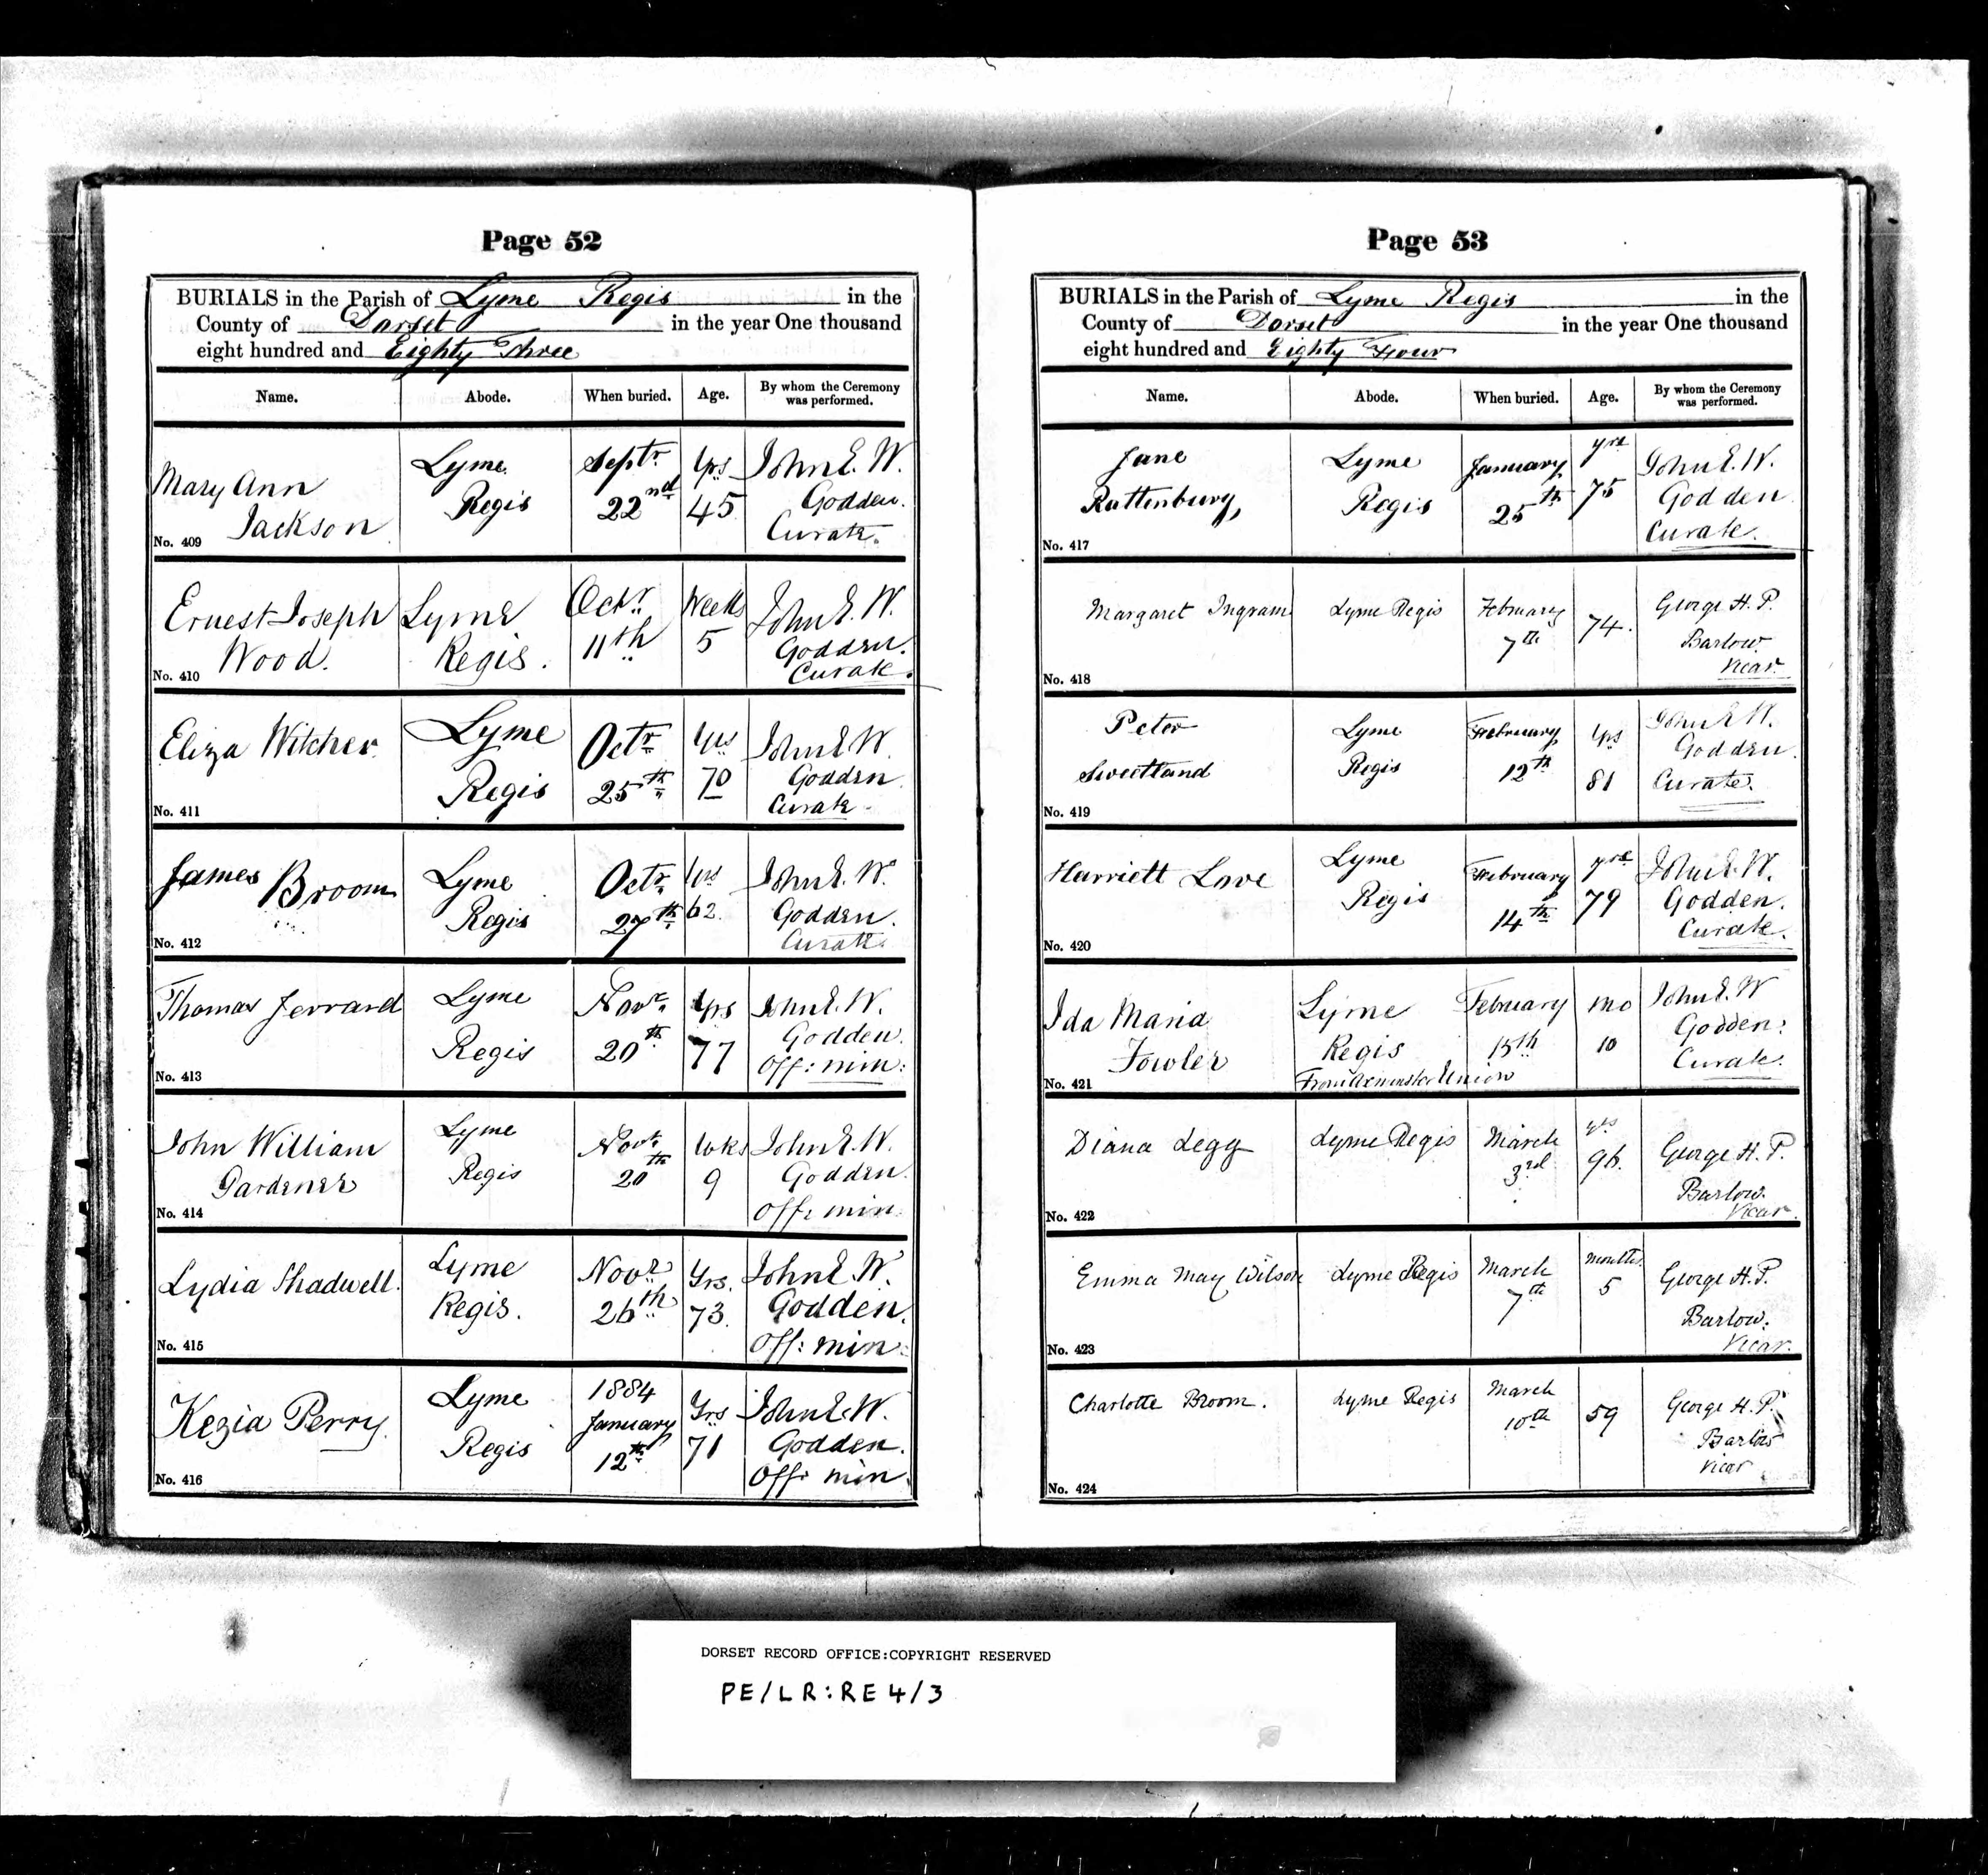 Page 52
BURIALS in the Parish of Lyme Regis in the
County of Dorset in the year One thousand
eight hundred and Eighty Three
Name. Abode. When buried. Age. By whom the Ceremony was performed.
Mary Ann Jackson
Lyme Regis
Septr 22nd
Yrs 45
John E. W. Godden. Curate.
No. 409
Ernest Joseph Wood.
Lyme Regis.
Octr 11th
Weeks 5
John E. W. Godden. Curate.
No. 410
Eliza Witcher
Lyme Regis
Octr 25th
Yrs 70
John E. W. Godden Curate
No. 411
James Broom
Lyme Regis
Octr 27th
Yrs 62.
John E. W. Godden. Curate.
No. 412
Thomas Jerrard
Lyme Regis
Novr 20th
Yrs 77
John E. W. Godden. Off: min:
No. 413
John William Gardener
Lyme Regis
Novr 20th
Wks 9
John E. W. Godden. Off: min.
No. 414
Lydia Shadwell.
Lyme Regis.
Novr 26th
Yrs. 73.
John E. W. Godden. Off: min:
No. 415
Kezia Perry.
Lyme Regis
1884 January 12th
Yrs 71
John E. W. Godden. Off: min.
No. 416
Page 53
BURIALS in the Parish of Lyme Regis in the
County of Dorset in the year One thousand
eight hundred and Eighty Four
Name. Abode. When buried. Age. By whom the Ceremony was performed.
Jane Rattenbury,
Lyme Regis
January 25th
yrs 75
John E. W. Godden Curate.
No. 417
Margaret Ingram
Lyme Regis
February 7th
74.
George H. P. Barlow. Vicar
No. 418
Peter Sweetland
Lyme Regis
February 12th
Yrs 81
John E. W. Godden. Curate.
No. 419
Harriett Love
Lyme Regis
February 14th
yrs 79
John E. W. Godden. Curate.
No. 420
Ida Maria Fowler
Lyme Regis
From Axminster Union
February 15th
mo 10
John E. W Godden: Curate.
No. 421
Diana Legg
Lyme Regis
March 3rd
yrs 96.
George H. P. Barlow. Vicar.
No. 422
Emma May Wilson
Lyme Regis
March 7th
months. 5
George H. P. Barlow. Vicar.
No. 423
Charlotte Broom.
Lyme Regis
March 10th
59
George H. P. Barlow Vicar
No. 424
DORSET RECORD OFFICE:COPYRIGHT RESERVED
PE/LR:RE4/3